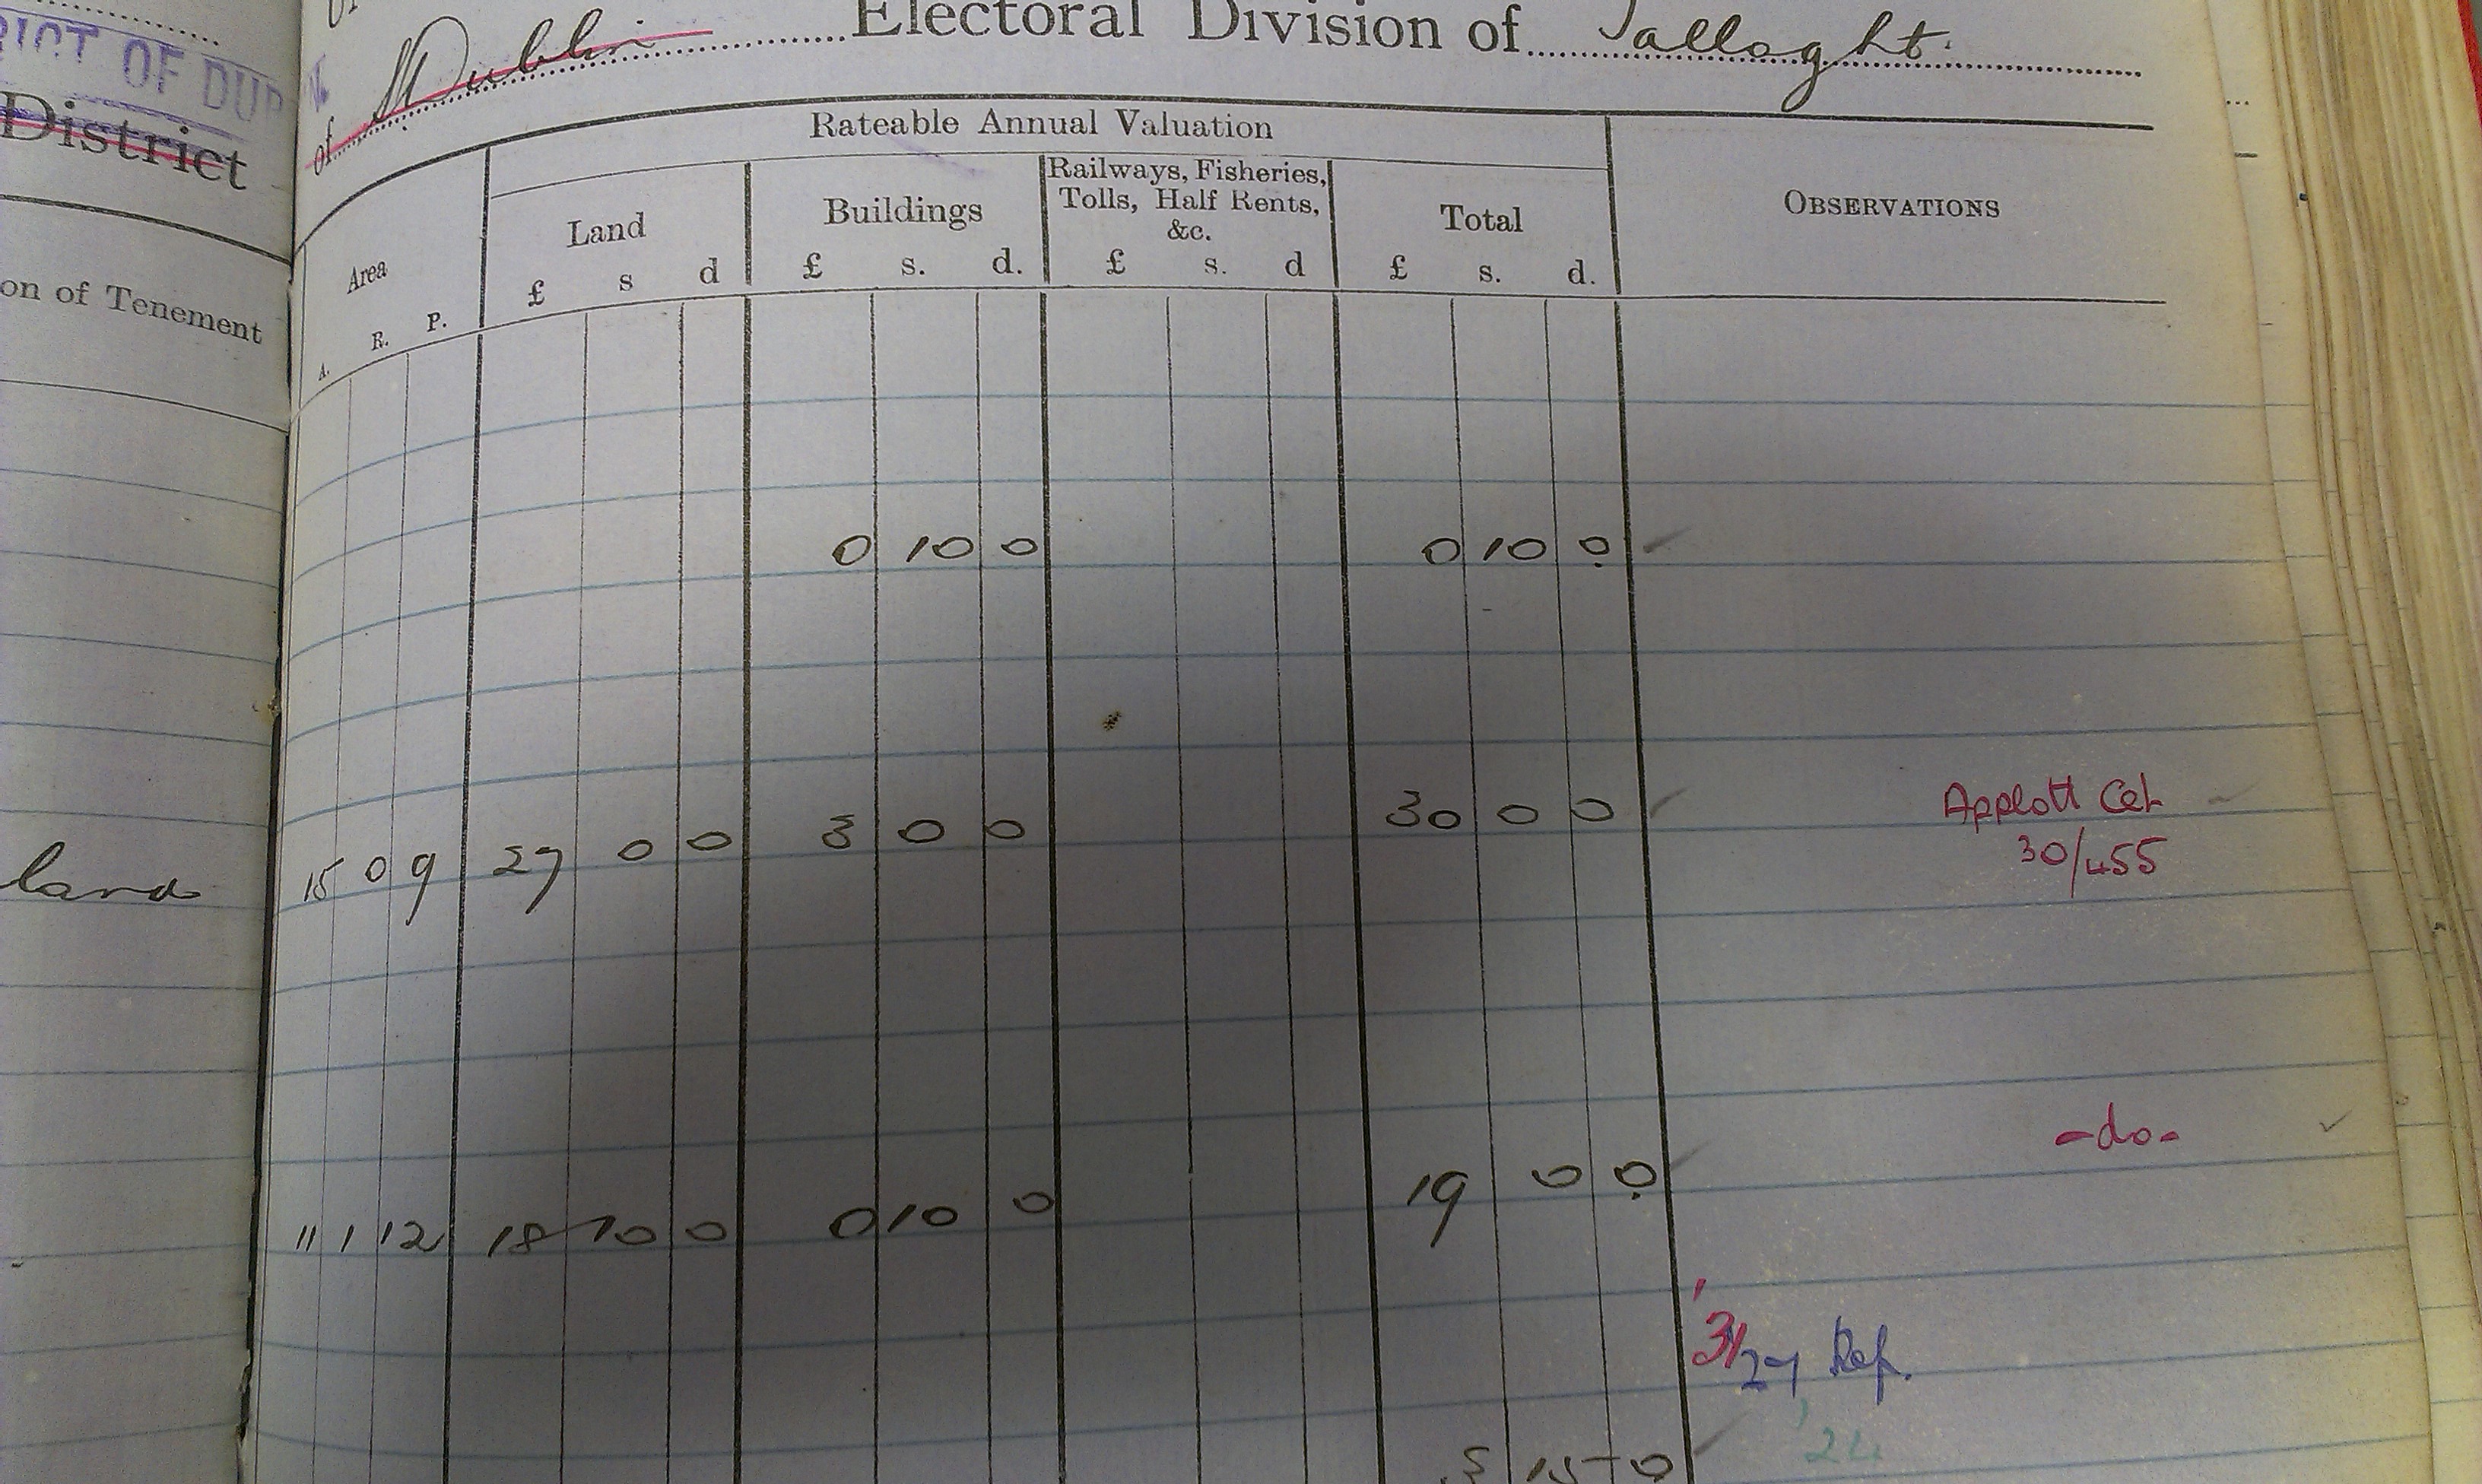 RICT OF DU
District
on of Tenement
land
of Dublin Electoral Division of Tallaght.
Rateable Annual Valuation
Area
A. R. P.
Land
£ s d
Buildings
£ s. d.
Railways, Fisheries,
Tolls, Half Rents,
&c.
£ s. d
Total
£ s. d.
OBSERVATIONS
0 10 0 0 10 0
15 0 9 27 0 0 3 0 0 30 0 0
30/455
11 1 12 18 10 0 0 10 0 19 0 0
-do-
31/27 Ref.
'24
15 0